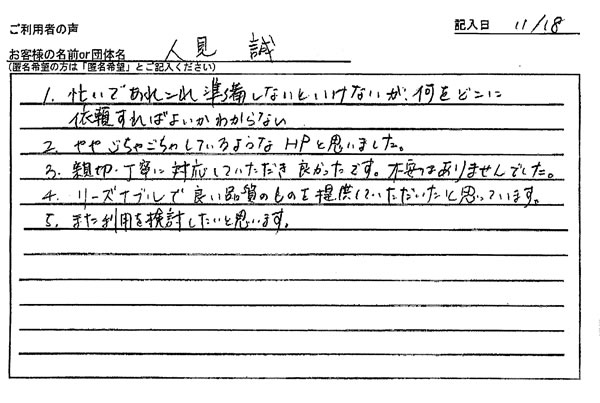 ご利用者の声
記入日 11/18
お客様の名前or団体名 人見 誠
(匿名希望の方は「匿名希望」とご記入ください)
1. 忙いであれこれ準備しないといけないが、何をどこに
依頼すればよいかわからない
2. ややごちゃごちゃしているようなHPと思いました。
3. 親切・丁寧に対応していただき良かったです。不要はありませんでした。
4. リーズナブルで良い品質のものを提供していただいたと思っています。
5. また利用を検討したいと思います。